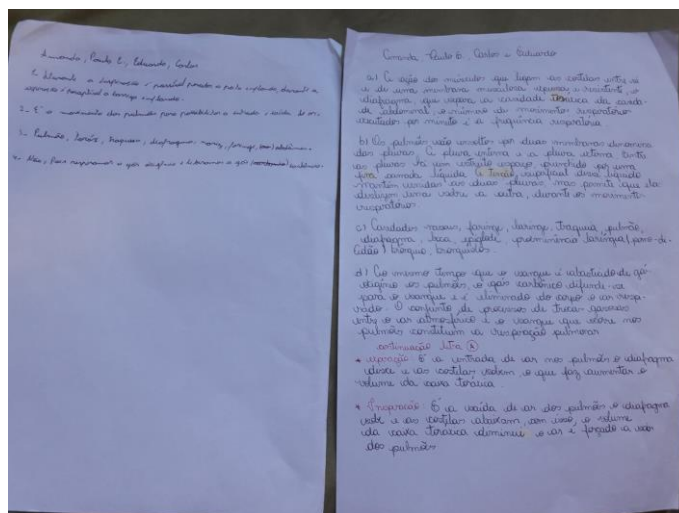 Amanda, Paulo E, Eduardo, Carlos
1. Durante a inspiração é possível perceber o peito inflando, durante a
expiração é perceptível o tórax
2- É o movimento dos pulmões para possibilitar a entrada e saída de ar.
3- Pulmão, Tórax, traqueia, diafragma, nariz, faringe, abdômen.
4- Não, Pois respiramos o gás oxigênio e liberamos o gás carbônico.
Amanda, Paulo E, Carlos e Eduardo
a) A ação dos músculos que ligam as costelas entre si
e de uma membrana musculosa espessa e resistente, o
diafragma, que separa a cavidade torácica da cavida-
de abdominal, o número de movimentos respiratórios
executados por minuto é a frequência respiratória
b) Os pulmões são envoltos por duas membranas denomina
das pleuras. A pleura interna e a pleura externa. Entre
as pleuras há um estreito espaço, preenchido por uma
fina camada líquida. A tensão superficial desse líquido
mantém unidas as duas pleuras, mas permite que elas
deslizem uma sobre a outra, durante os movimentos
respiratórios.
c) Cavidades nasais, faringe, laringe, traqueia, pulmão,
diafragma, boca, epiglote, proeminência laríngea (pomo-de-
adão) brônquio, bronquíolos.
d) Ao mesmo tempo que o sangue é abastecido de gás
oxigênio nos pulmões, o gás carbônico difunde-se
para o sangue e é eliminado do corpo o ar respi-
rado. O conjunto de processos de trocas gasosas
entre o ar atmosférico e o sangue que ocorre nos
pulmões constituem a respiração pulmonar
continuação letra A
É a entrada de ar nos pulmões o diafragma
desce e as costelas sobem, o que faz aumentar o
volume da caixa torácica
É a saída de ar dos pulmões o diafragma
sobe e as costelas abaixam, com isso, o volume
da caixa torácica diminui e o ar é forçado a sair
dos pulmões